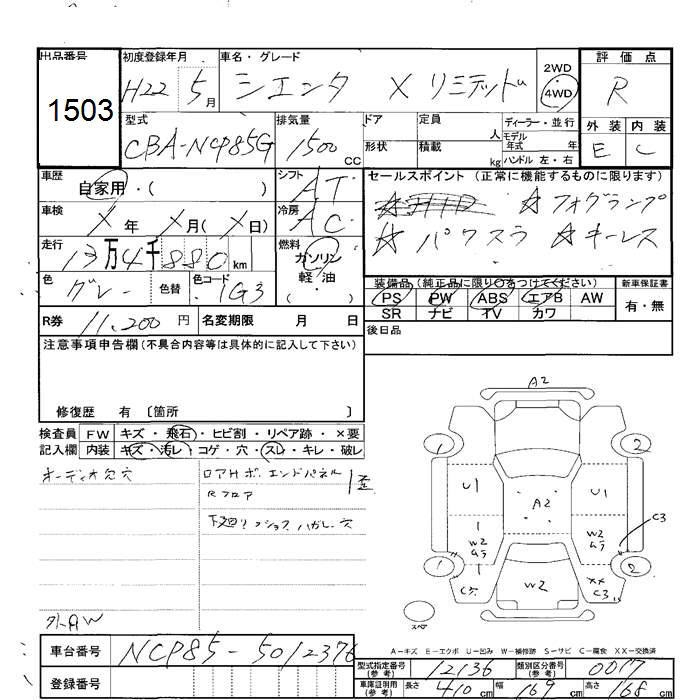 出品番号 初度登録年月 車名・グレード 2WD 評価点
1503 H22 5月 シエンタ X リミテッド 4WD R
型式 排気量 ドア 定員 人 ディーラー・並行 外装 内装
CBA-NCP85G 1500 CC 形状 積載 kg モデル年式 年 ハンドル 左・右 E C
車歴 自家用・( ) シフト AT セールスポイント (正常に機能するものに限ります)
車検 X年 X月(X日) 冷房 AC ☆フォグランプ
走行 13万4千880km 燃料 ガソリン 軽・油 ( ) ☆パワスラ ☆キーレス
色 グレー 色替 色コード 1G3 装備品(純正品に限り○をつけてください) 新車保証書
PS PW ABS エアB AW 有・無
SR ナビ TV カワ
R券 11,200円 名変期限 月 日 後日品
注意事項申告欄(不具合内容等は具体的に記入して下さい)
修復歴 有 〔箇所 〕
検査員 FW キズ・飛石・ヒビ割・リペア跡・×要
記入欄 内装 キズ・汚レ・コゲ・穴・スレ・キレ・破レ
オーディオ欠穴 ロアHボ.エンドパネル
Rフロア
外AW
A2
1 2
U1 A2 U1
1 W2
W2 C3
1 1 W2 2
XX C3
スペア
A-キズ E-エクボ U-凹み W-補修跡 S-サビ C-腐食 XX-交換済
車台番号 NCP85-5012376
登録番号
型式指定番号(参考) 12136 類別区分番号(参考) 0017
車庫証明用(参考) 長さ 410cm 幅 169cm 高さ 168cm